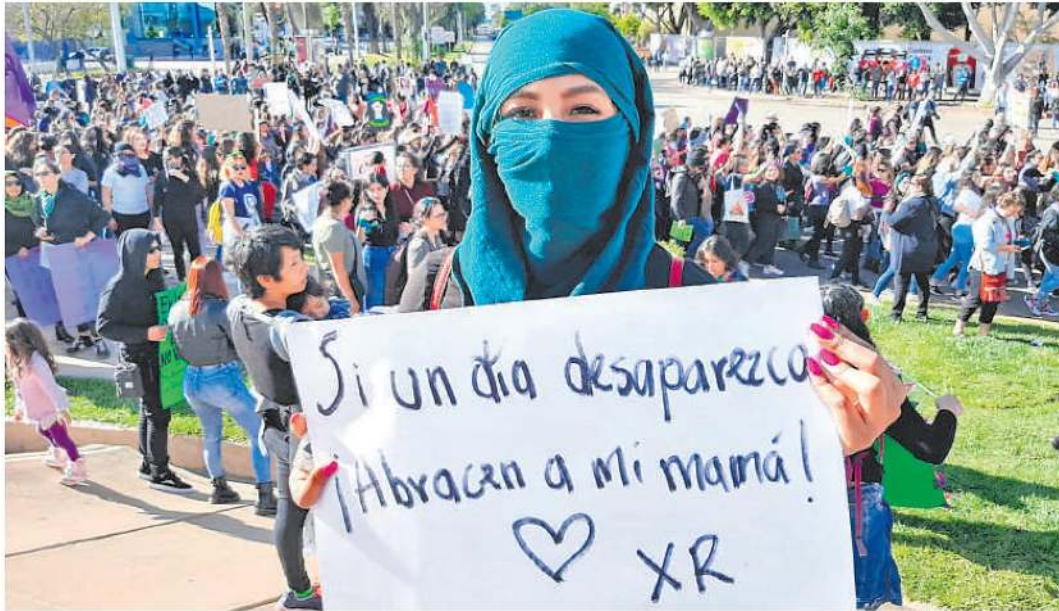 Si un día desaparezca
¡Abracen a mi mamá!
♡ XR